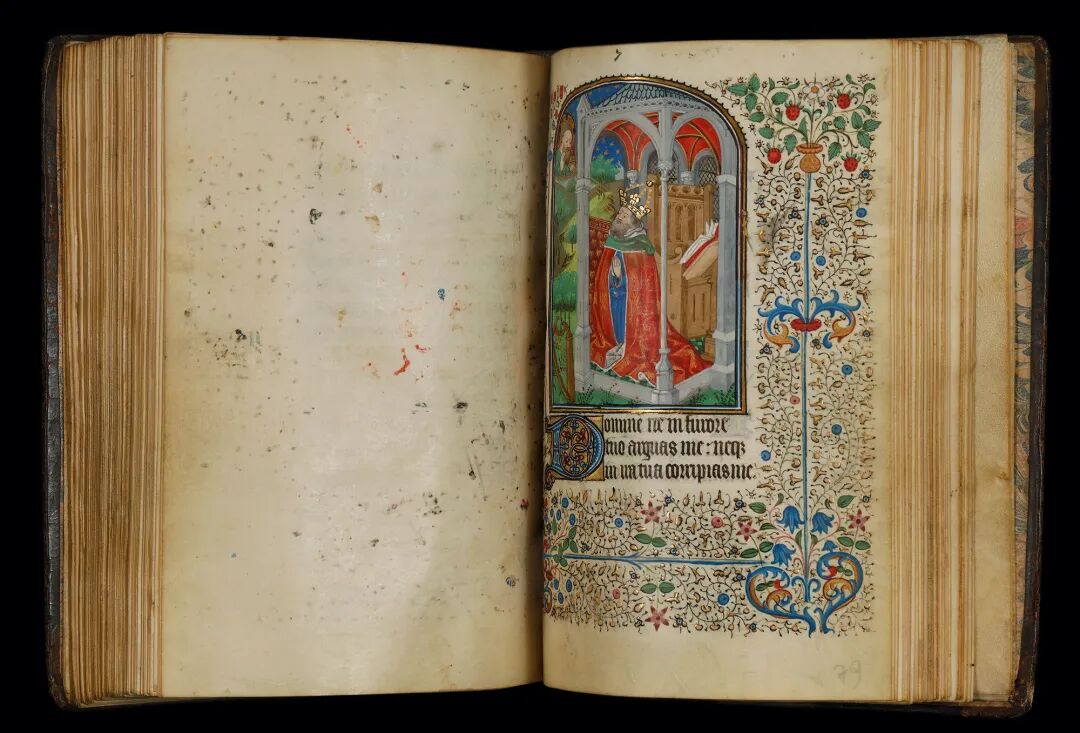 Domine ne in furore
tuo arguas me : neqꝫ
in ira tua corripias me.
79